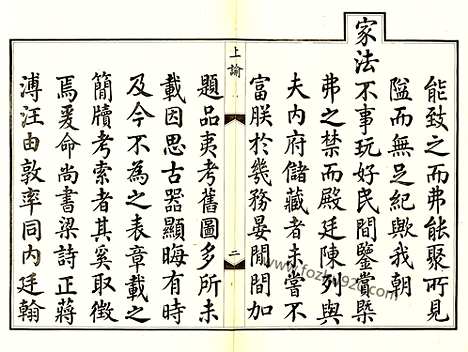 能致之而弗能聚所見
隘而無足紀歟我朝
家法不事玩好民間鑒賞槩
弗之禁而殿廷陳列與
夫内府儲藏者未嘗不
富朕於幾務晏閒間加
上諭
二
題品夷考舊圖多所未
載因思古器顯晦有時
及今不為之表章載之
簡牘考索者其奚取徵
焉爰命尚書梁詩正蔣
溥汪由敦率同内廷翰